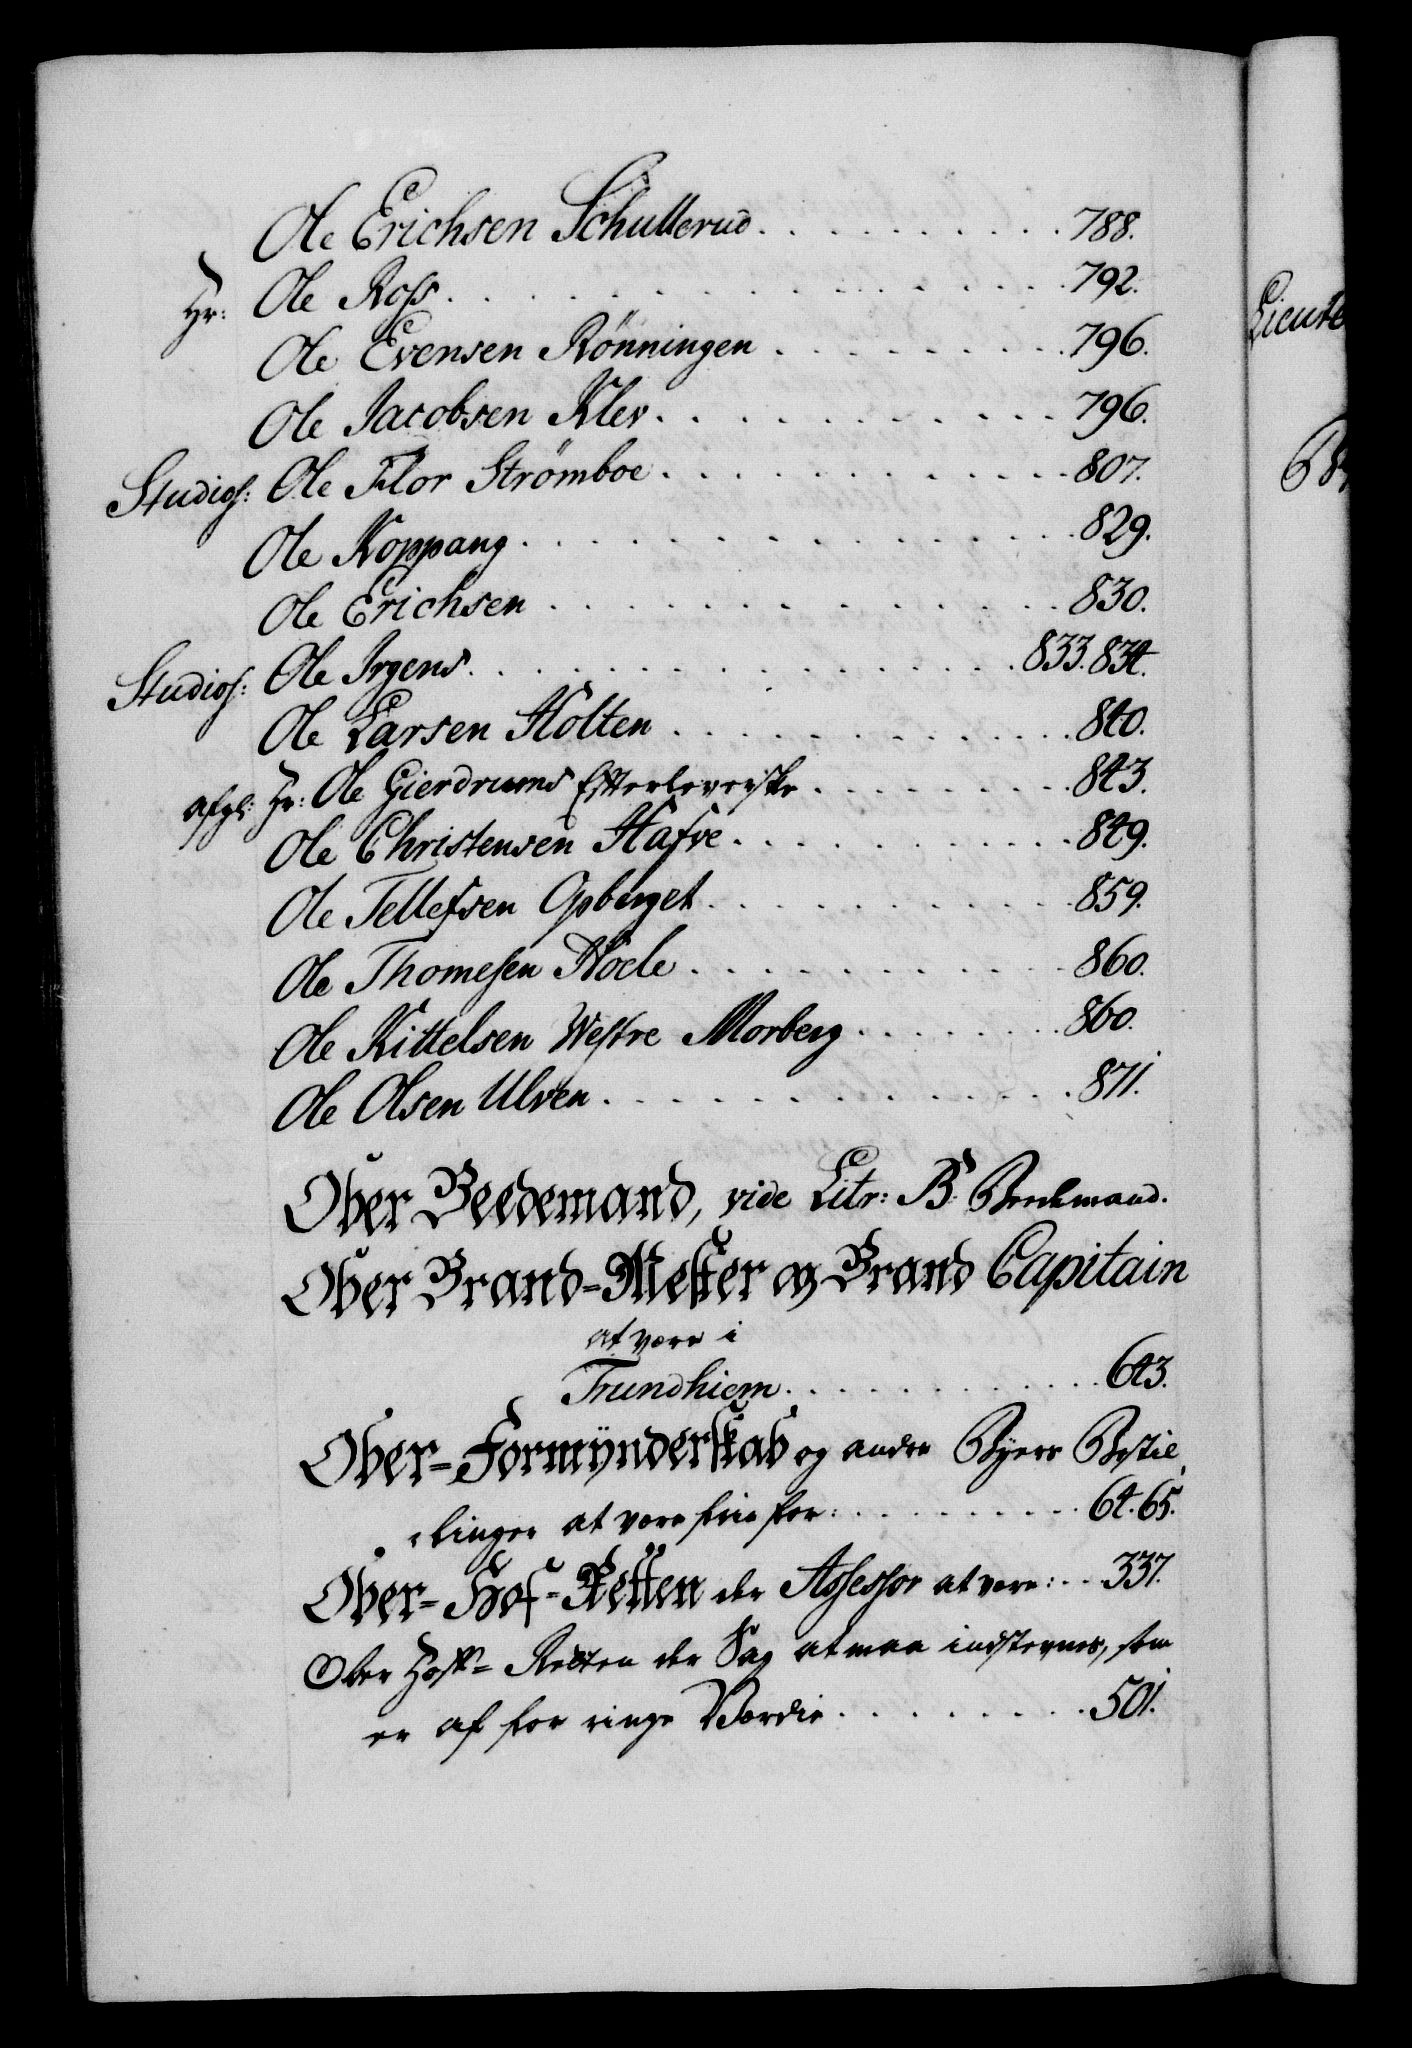 Ole Erichsen Schullerud . . . . . . . . . . 788.
Hr: Ole Ross . . . . . . . . . . . . . . . 792.
Ole Evensen Rönningen . . . . . . . . . 796.
Ole Jacobsen Klev . . . . . . . . . . . . 796.
Studios: Ole Flor Strömboe . . . . . . . . . . . . 807.
Ole Koppang . . . . . . . . . . . . . . . 829.
Ole Erichsen . . . . . . . . . . . . . . 830.
Studios: Ole Irgens . . . . . . . . . . . . . . 833. 834.
Ole Larsen Holten . . . . . . . . . . . . 840.
afgl: Hr: Ole Gierdrums Efterleverske . . . . . . . . . 843.
Ole Christensen Hafve . . . . . . . . . . 849.
Ole Tellefsen Opberget . . . . . . . . . . 859.
Ole Thomesen Noele . . . . . . . . . . . 860.
Ole Kittelsen Westre Morberg . . . . . . . . 860.
Ole Olsen Ulven . . . . . . . . . . . . . 871.
Ober Beedemand, vide Litr: B. Beedemand.
Ober Brand-Mester og Brand Capitain
at være i
Trundhiem . . . . . . . . . . . 643.
Ober-Formÿnderskab og andre Byens Bestil
linger at være frie for: . . . . . . . . . 64. 65.
Ober-Hof-Retten der Assessor at være: . . 337.
Ober Hoff-Retten der Sag at maa indstevnes, som
er af for ringe Værdie . . . . . . . . . 501.
Lieute